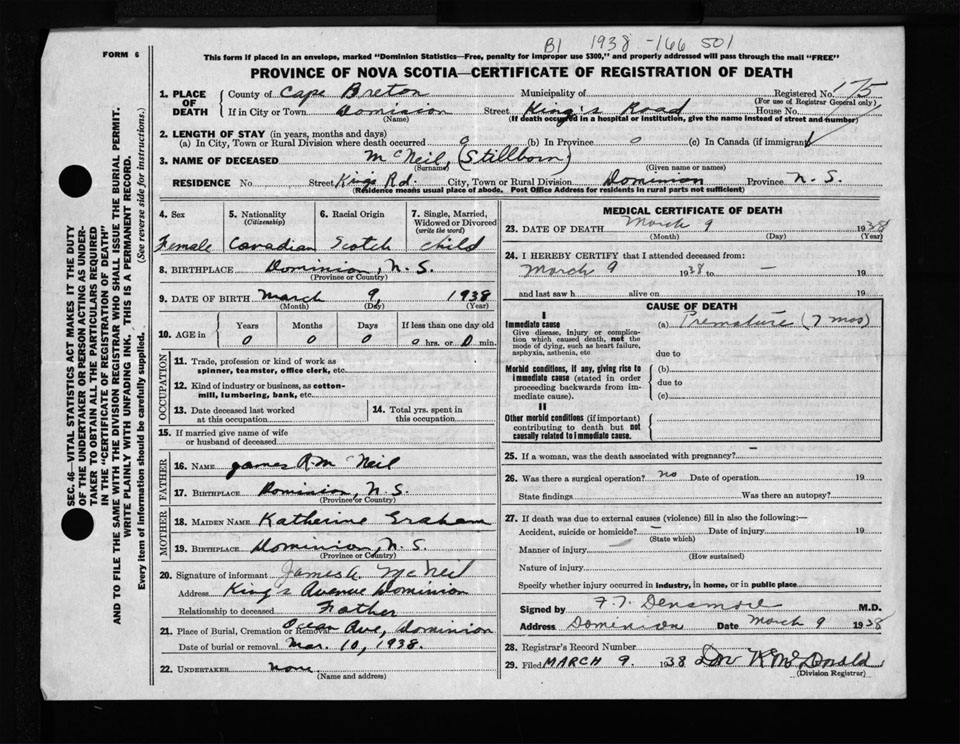 B1 1938 -166 501
FORM 6
This form if placed in an envelope, marked "Dominion Statistics—Free, penalty for improper use $300," and properly addressed will pass through the mail "FREE"
PROVINCE OF NOVA SCOTIA—CERTIFICATE OF REGISTRATION OF DEATH
SEC. 46—VITAL STATISTICS ACT MAKES IT THE DUTY
OF THE UNDERTAKER OR PERSON ACTING AS UNDER-
TAKER TO OBTAIN ALL THE PARTICULARS REQUIRED
IN THE "CERTIFICATE OF REGISTRATION OF DEATH"
AND TO FILE THE SAME WITH THE DIVISION REGISTRAR WHO SHALL ISSUE THE BURIAL PERMIT.
WRITE PLAINLY WITH UNFADING INK. THIS IS A PERMANENT RECORD.
Every item of information should be carefully supplied. (See reverse side for instructions.)
1. PLACE OF DEATH County of Cape Breton Municipality of Registered No. 175
(For use of Registrar General only)
If in City or Town Dominion Street King's Road House No.
(Name) (If death occurred in a hospital or institution, give the name instead of street and number)
2. LENGTH OF STAY (in years, months and days)
(a) In City, Town or Rural Division where death occurred 0 (b) In Province 0 (c) In Canada (if immigrant)
3. NAME OF DECEASED McNeil, (Stillborn)
(Surname) (Given name or names)
RESIDENCE No Street King's Rd. City, Town or Rural Division Dominion Province N. S.
(Residence means usual place of abode. Post Office Address for residents in rural parts not sufficient)
4. Sex 5. Nationality (Citizenship) 6. Racial Origin 7. Single, Married, Widowed or Divorced (write the word)
Female Canadian Scotch Child
8. BIRTHPLACE Dominion, N. S.
(Province or Country)
9. DATE OF BIRTH March 9, 1938
(Month) (Day) (Year)
10. AGE in Years Months Days If less than one day old
0 0 0 0 hrs. or 0 min.
OCCUPATION
11. Trade, profession or kind of work as
spinner, teamster, office clerk, etc.
12. Kind of industry or business, as cotton-
mill, lumbering, bank, etc.
13. Date deceased last worked
at this occupation
14. Total yrs. spent in
this occupation
15. If married give name of wife
or husband of deceased
FATHER
16. NAME James A. McNeil
17. BIRTHPLACE Dominion, N. S.
(Province or Country)
MOTHER
18. MAIDEN NAME Katherine Graham
19. BIRTHPLACE Dominion, N. S.
(Province or Country)
20. Signature of informant James A. McNeil
Address King's Avenue Dominion
Relationship to deceased Father
21. Place of Burial, Cremation or Removal Ocean Ave, Dominion
Date of burial or removal Mar. 10, 1938.
22. UNDERTAKER none
(Name and address)
MEDICAL CERTIFICATE OF DEATH
23. DATE OF DEATH March 9 1938
(Month) (Day) (Year)
24. I HEREBY CERTIFY that I attended deceased from:
March 9 1938 to — 19
and last saw h alive on 19
CAUSE OF DEATH
I
Immediate cause (a) Premature (7 mos)
Give disease, injury or complica-
tion which caused death, not the
mode of dying, such as heart failure,
asphyxia, asthenia, etc due to
Morbid conditions, if any, giving rise to (b)
immediate cause (stated in order due to
proceeding backwards from im-
mediate cause). (c)
II
Other morbid conditions (if important)
contributing to death but not
causally related to immediate cause.
25. If a woman, was the death associated with pregnancy? —
26. Was there a surgical operation? no Date of operation 19
State findings Was there an autopsy?
27. If death was due to external causes (violence) fill in also the following:—
Accident, suicide or homicide? — Date of injury 19
(State which)
Manner of injury
(How sustained)
Nature of injury
Specify whether injury occurred in industry, in home, or in public place
Signed by F. T. Densmore M.D.
Address Dominion Date March 9 1938
28. Registrar's Record Number
29. Filed MARCH 9. 1938 McDonald
(Division Registrar)